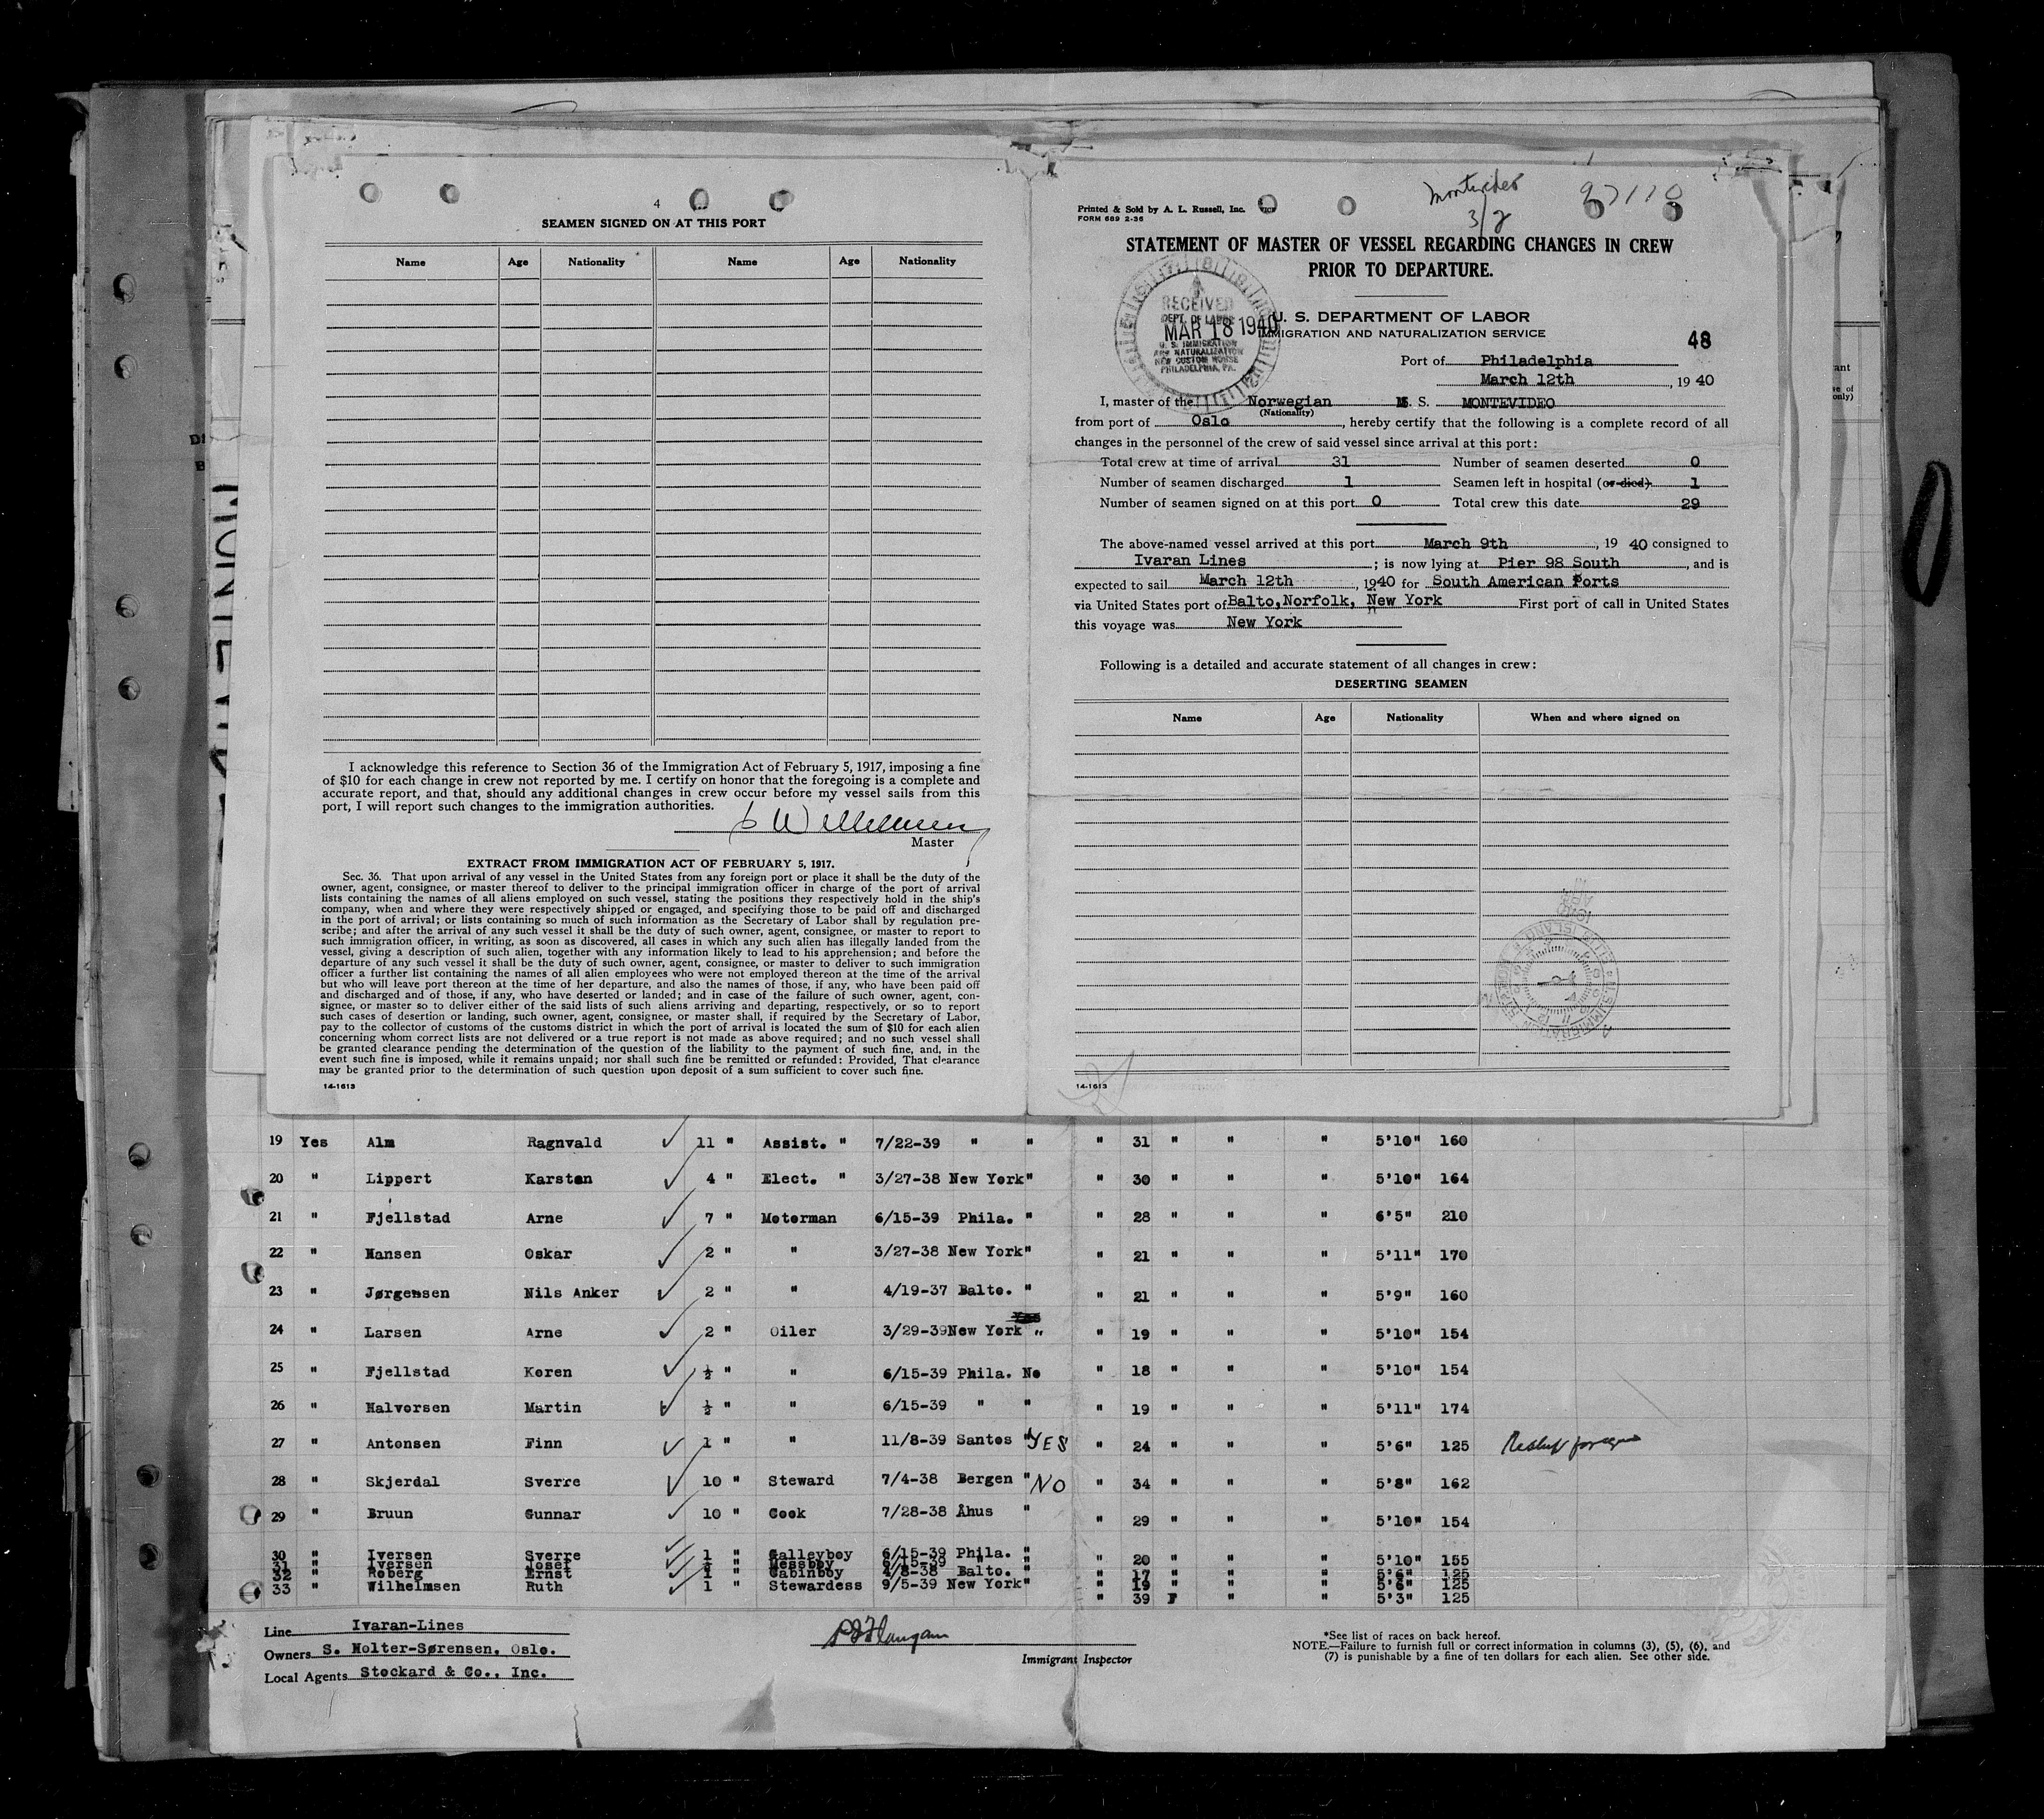 4
SEAMEN SIGNED ON AT THIS PORT
Name Age Nationality Name Age Nationality
I acknowledge this reference to Section 36 of the Immigration Act of February 5, 1917, imposing a fine
of $10 for each change in crew not reported by me. I certify on honor that the foregoing is a complete and
accurate report, and that, should any additional changes in crew occur before my vessel sails from this
port, I will report such changes to the immigration authorities.
Master
EXTRACT FROM IMMIGRATION ACT OF FEBRUARY 5, 1917.
Sec. 36. That upon arrival of any vessel in the United States from any foreign port or place it shall be the duty of the
owner, agent, consignee, or master thereof to deliver to the principal immigration officer in charge of the port of arrival
lists containing the names of all aliens employed on such vessel, stating the positions they respectively hold in the ship's
company, when and where they were respectively shipped or engaged, and specifying those to be paid off and discharged
in the port of arrival; or lists containing so much of such information as the Secretary of Labor shall by regulation pre-
scribe; and after the arrival of any such vessel it shall be the duty of such owner, agent, consignee, or master to report to
such immigration officer, in writing, as soon as discovered, all cases in which any such alien has illegally landed from the
vessel, giving a description of such alien, together with any information likely to lead to his apprehension; and before the
departure of any such vessel it shall be the duty of such owner, agent, consignee, or master to deliver to such immigration
officer a further list containing the names of all alien employees who were not employed thereon at the time of the arrival
but who will leave port thereon at the time of her departure, and also the names of those, if any, who have been paid off
and discharged and of those, if any, who have deserted or landed; and in case of the failure of such owner, agent, con-
signee, or master so to deliver either of the said lists of such aliens arriving and departing, respectively, or so to report
such cases of desertion or landing, such owner, agent, consignee, or master shall, if required by the Secretary of Labor,
pay to the collector of customs of the customs district in which the port of arrival is located the sum of $10 for each alien
concerning whom correct lists are not delivered or a true report is not made as above required; and no such vessel shall
be granted clearance pending the determination of the question of the liability to the payment of such fine, and, in the
event such fine is imposed, while it remains unpaid; nor shall such fine be remitted or refunded: Provided, That clearance
may be granted prior to the determination of such question upon deposit of a sum sufficient to cover such fine.
14-1613
Montevideo
3/2
97110
Printed & Sold by A. L. Russell, Inc.
FORM 689 2-36
STATEMENT OF MASTER OF VESSEL REGARDING CHANGES IN CREW
PRIOR TO DEPARTURE.
RECEIVED
DEPT. OF LABOR
MAR 18 1940
U. S. IMMIGRATION
AND NATURALIZATION
NEW CUSTOM HOUSE
PHILADELPHIA, PA.
U. S. DEPARTMENT OF LABOR
IMMIGRATION AND NATURALIZATION SERVICE
48
Port of Philadelphia
March 12th, 1940
I, master of the Norwegian M. S. MONTEVIDEO
(Nationality)
from port of Oslo, hereby certify that the following is a complete record of all
changes in the personnel of the crew of said vessel since arrival at this port:
Total crew at time of arrival 31 Number of seamen deserted 0
Number of seamen discharged 1 Seamen left in hospital (or died) 1
Number of seamen signed on at this port 0 Total crew this date 29
The above-named vessel arrived at this port March 9th, 1940 consigned to
Ivaran Lines; is now lying at Pier 98 South, and is
expected to sail March 12th, 1940 for South American Ports
via United States port of Balto, Norfolk, New York First port of call in United States
this voyage was New York
Following is a detailed and accurate statement of all changes in crew:
DESERTING SEAMEN
Name Age Nationality When and where signed on
14-1613
19 Yes Alm Ragnvald 11 " Assist. " 7/22-39 " " " 31 " " " 5'10" 160
20 " Lippert Karsten 4 " Elect. " 3/27-38 New York " " 30 " " " 5'10" 164
21 " Fjellstad Arne 7 " Motorman 6/15-39 Phila. " " 28 " " " 6'5" 210
22 " Hansen Oskar 2 " " 3/27-38 New York " " 21 " " " 5'11" 170
23 " Jørgensen Nils Anker 2 " " 4/19-37 Balto. " " 21 " " " 5'9" 160
24 " Larsen Arne 2 " Oiler 3/29-39 New York " " 19 " " " 5'10" 154
25 " Fjellstad Koren ½ " " 6/15-39 Phila. No " 18 " " " 5'10" 154
26 " Halvorsen Martin ½ " " 6/15-39 " " " 19 " " " 5'11" 174
27 " Antonsen Finn 1 " " 11/8-39 Santos " YES " 24 " " " 5'6" 125
28 " Skjerdal Sverre 10 " Steward 7/4-38 Bergen " NO " 34 " " " 5'8" 162
29 " Bruun Gunnar 10 " Cook 7/28-38 Åhus " " 29 " " " 5'10" 154
30 " Iversen Sverre 1 " Galleyboy 6/15-39 Phila. " " 20 " " " 5'10" 155
31 " Iversen Josef " Messboy 6/15-39 " " " 17 " " " 5'6" 125
32 " Roberg Ernst 1 " Cabinboy 4/8-38 Balto. " " 19 " " " 5'6" 125
33 " Wilhelmsen Ruth 1 " Stewardess 9/5-39 New York " " 39 F " " " 5'3" 125
Line Ivaran-Lines
Owners S. Holter-Sørensen, Oslo.
Local Agents Stockard & Co., Inc.
Immigrant Inspector
*See list of races on back hereof.
NOTE.—Failure to furnish full or correct information in columns (3), (5), (6), and
(7) is punishable by a fine of ten dollars for each alien. See other side.